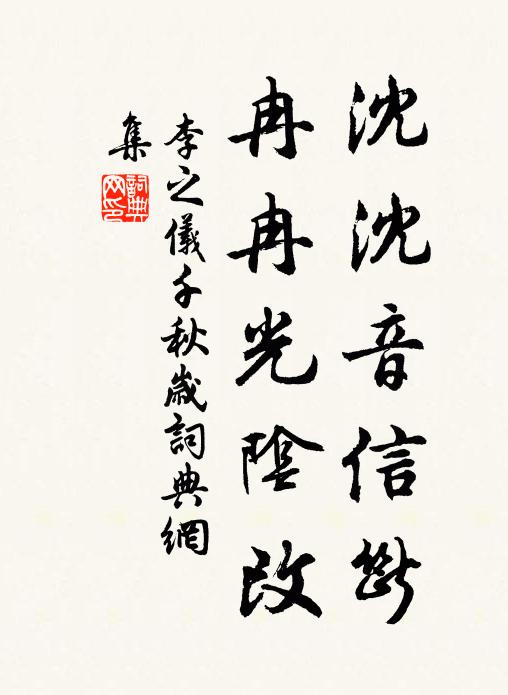 沈沈音信斷
冉冉光陰改
李之儀千秋歲詞典網
集
詞典
网印